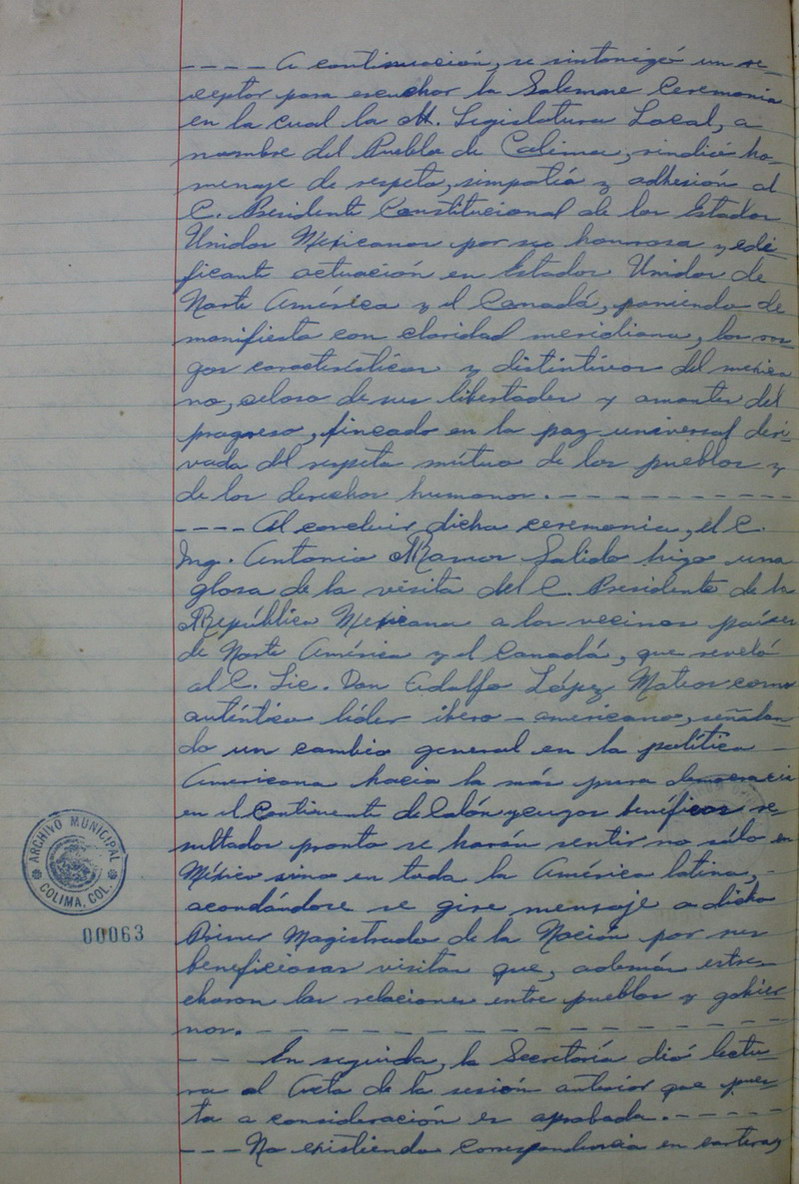 ---- A continuación, se sintonizó un re-
ceptor para escuchar la Solemne Ceremonia
en la cual la H. Legislatura Local, a
nombre del Pueblo de Colima, rindió ho-
menaje de respeto, simpatía y adhesión al
C. Presidente Constitucional de los Estados
Unidos Mexicanos por su honrosa y edi-
ficante actuación en Estados Unidos de
Norte América y el Canadá, poniendo de
manifiesto con claridad meridiana, los ras-
gos característicos y distintivos del mexica
no, celoso de sus libertades y amantes del
progreso, fincado en la paz universal deri-
vada del respeto mútuo de los pueblos y
de los derechos humanos. - - - - - - - - - -
---- Al concluir dicha ceremonia, el C.
Ing. Antonio Ramos Salido hizo una
glosa de la visita del C. Presidente de la
República Mexicana a los vecinos países
de Norte América y el Canadá, que reveló
al C. Lic. Don Adolfo López Mateos como
auténtico líder ibero-americano, señalan-
do un cambio general en la política -
Americana hacia la más pura democracia
en el Continente de Colón y cuyos benéficos re-
sultados pronto se harán sentir no sólo en
México sino en toda la América latina, -
acordándose se gire mensaje a dicho
Primer Magistrado de la Nación por sus
beneficiosas visitas que, además estre-
charon las relaciones entre pueblos y gobier
nos. - - - - - - - - - - - - - -
-- En seguida, la Secretaría dió lectu-
ra al Acta de la sesión anterior que pues-
ta a consideración es aprobada. - - - - -
--- No existiendo correspondencia en cartera,
ARCHIVO MUNICIPAL
COLIMA, COL.
00063